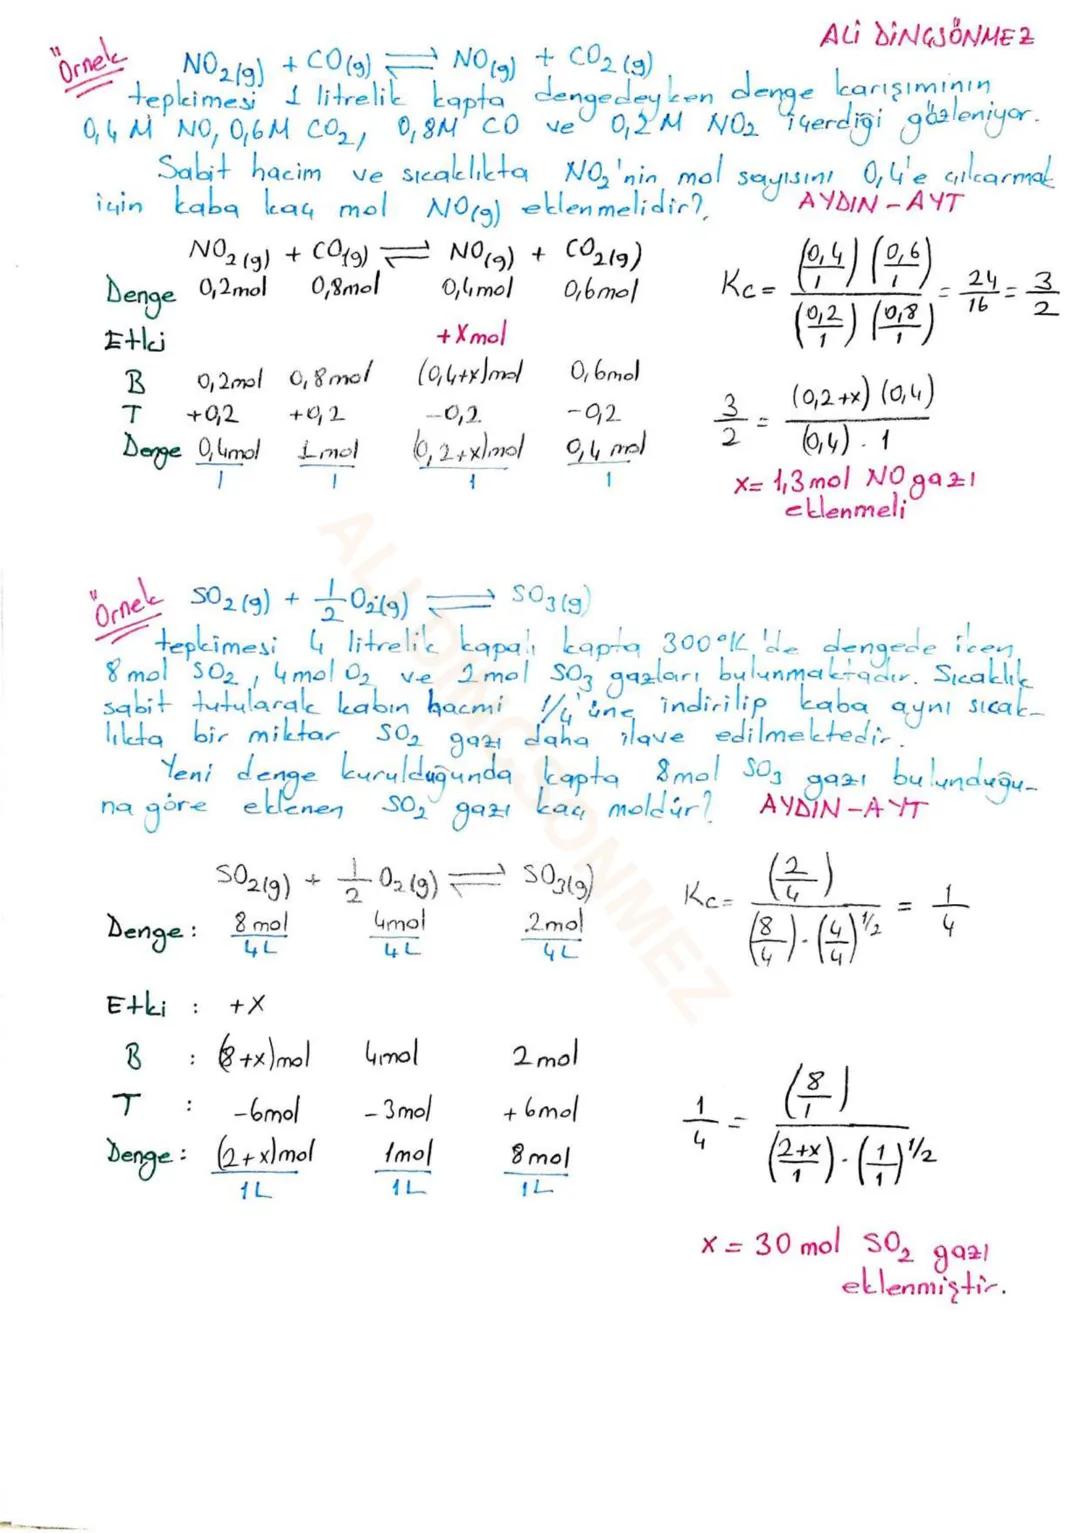 ALİ DİNÇSÖNMEZ
Örnek NO₂(g) + CO(g) ⇌ NO(g) + CO₂(g)
tepkimesi 1 litrelik kapta dengedeyken denge karışımının
0,4 M NO, 0,6M CO₂, 0,8M CO ve 0,2M NO₂ içerdiği gözleniyor.
Sabit hacim ve sıcaklıkta NO₂'nin mol sayısını 0,4'e çıkarmak
için kaba kaç mol NO(g) eklenmelidir? AYDIN-AYT
NO₂(g) + CO(g) ⇌ NO(g) + CO₂(g)
Denge 0,2mol 0,8mol 0,4mol 0,6mol
Etki +Xmol
B 0,2mol 0,8mol (0,4+x)mol 0,6mol
T +0,2 +0,2 -0,2 -0,2
Denge 0,4mol/1 1mol/1 (0,2+x)mol/1 0,4mol/1
Kc = (0,4/1)(0,6/1) / (0,2/1)(0,8/1) = 24/16 = 3/2
3/2 = (0,2+x)(0,4) / (0,4).1
x= 1,3mol NO gazı
eklenmeli
Örnek SO₂(g) + 1/2 O₂(g) ⇌ SO₃(g)
tepkimesi 4 litrelik kapalı kapta 300°K'de dengede iken
8 mol SO₂, 4mol O₂ ve 2mol SO₃ gazları bulunmaktadır. Sıcaklık
sabit tutularak kabın hacmi 1/4'üne indirilip kaba aynı sıcak-
lıkta bir miktar SO₂ gazı daha ilave edilmektedir.
Yeni denge kurulduğunda kapta 8mol SO₃ gazı bulunduğu-
na göre eklenen SO₂ gazı kaç moldür? AYDIN-AYT
SO₂(g) + 1/2 O₂(g) ⇌ SO₃(g)
Denge: 8mol/4L 4mol/4L 2mol/4L
Kc= (2/4) / (8/4).(4/4)^1/2 = 1/4
Etki : +X
B : (8+x)mol 4mol 2mol
T : -6mol -3mol +6mol
Denge: (2+x)mol/1L 1mol/1L 8mol/1L
1/4 = (8/1) / (2+x/1).(1/1)^1/2
x = 30 mol SO₂ gazı
eklenmiştir.
ALİ DİNÇSÖNMEZ